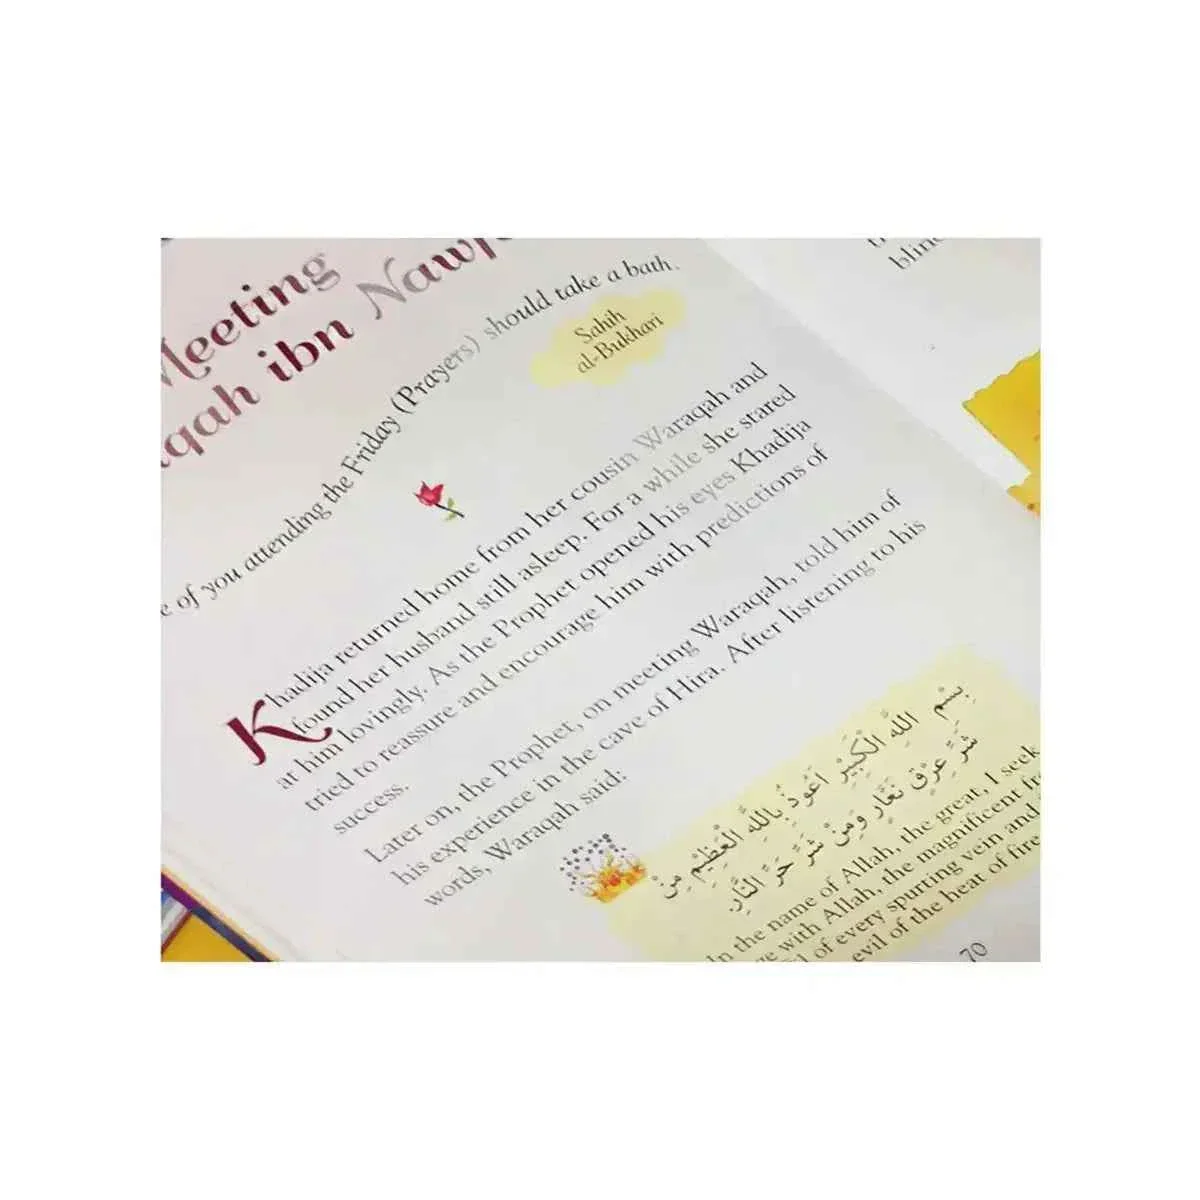 Meeting
ibn
of you attending the Friday (Prayers) should take a bath.
Sahih
al-Bukhari
Khadija returned home from her cousin Waraqah and
found her husband still asleep. For a while she stared
at him lovingly. As the Prophet opened his eyes Khadija
tried to reassure and encourage him with predictions of
success.
Later on, the Prophet, on meeting Waraqah, told him of
his experience in the cave of Hira. After listening to his
words, Waraqah said:
بِسْمِ اللَّهِ الْكَبِيْرِ اَعُوْذُ بِاللَّهِ الْعَظِيْمِ مِنْ
شَرِّ عِرْقٍ نَعَّارٍ وَمِنْ شَرِّ حَرِّ النَّارِ.
In the name of Allah, the great, I seek
with Allah, the magnificent
of every spurting vein and
evil of the heat of fire
70